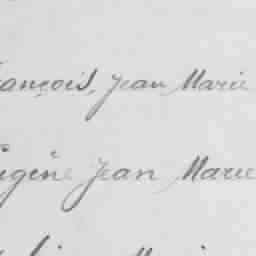 ançois, Jean Marie
ugène Jean Marie